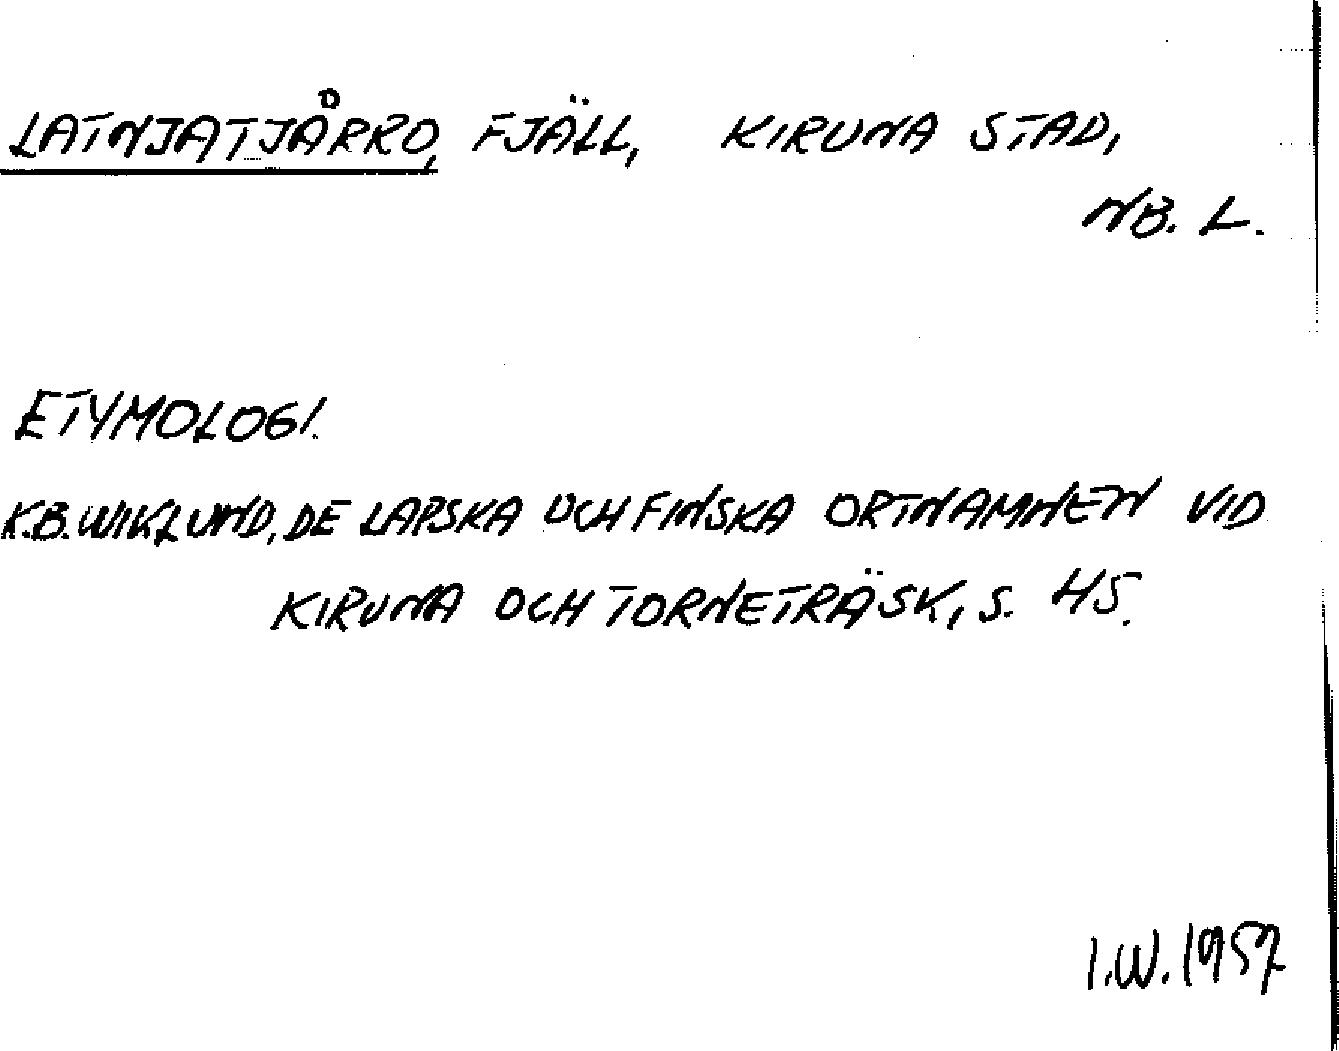 LATNJATJÅRRO, FJÄLL, KIRUNA STAD,
NB. L.
ETYMOLOGI.
K.B. WIKLUND, DE LAPSKA OCH FINSKA ORTNAMNEN VID
KIRUNA OCH TORNETRÄSK, S. 45.
I.W. 1957